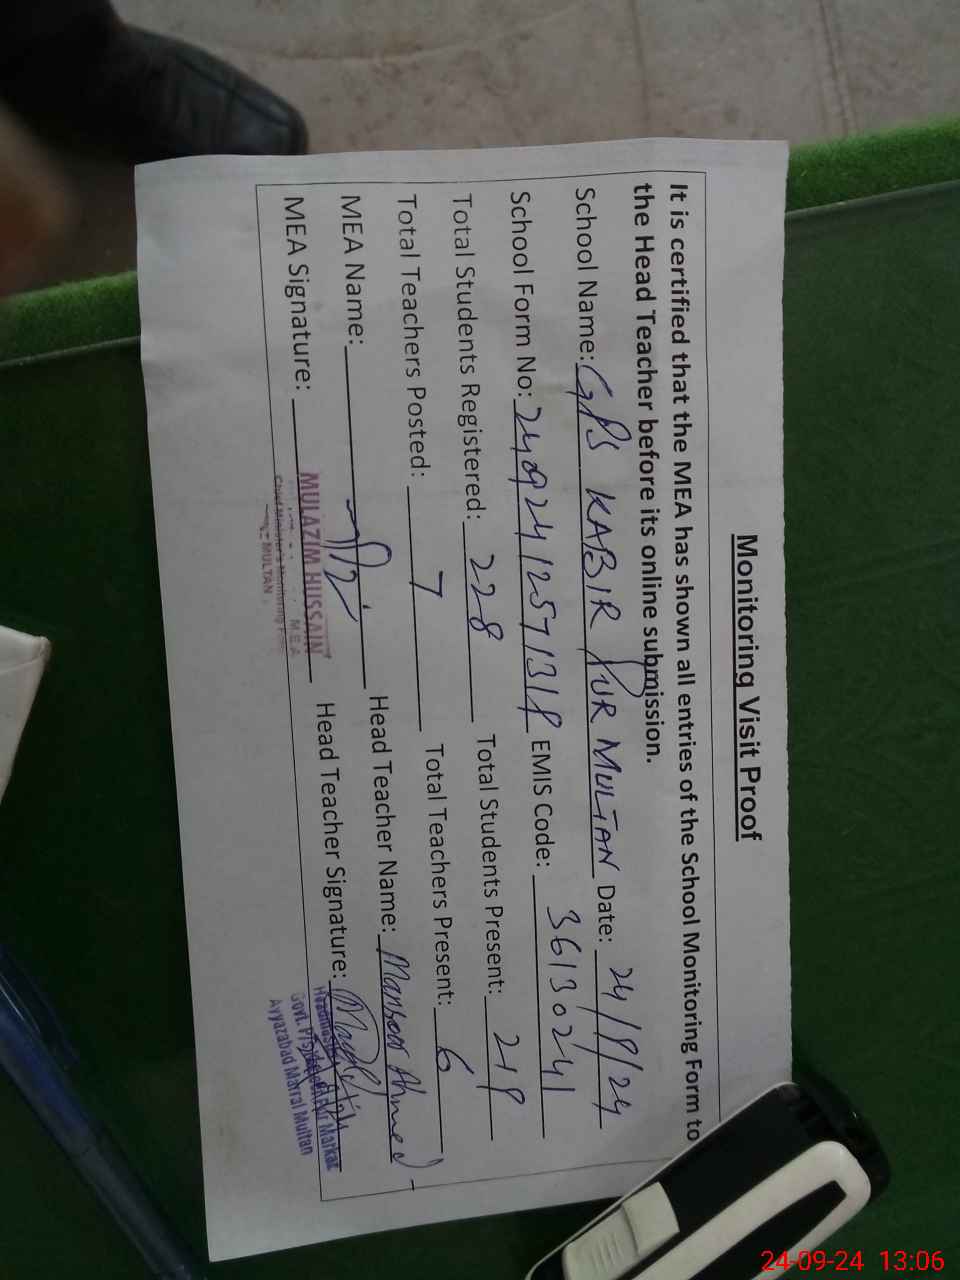 Monitoring Visit Proof
It is certified that the MEA has shown all entries of the School Monitoring Form to
the Head Teacher before its online submission.
School Name: GPS KABIR PUR MULTAN Date: 24/9/24
School Form No: 24092412571319 EMIS Code: 36130241
Total Students Registered: 228 Total Students Present: 219
Total Teachers Posted: 7 Total Teachers Present: 6
MEA Name: Head Teacher Name: Mansoor Ahmed
MEA Signature: Head Teacher Signature:
MULAZIM HUSSAIN
M.E.A
Chief Minister's Monitoring
MULTAN
Govt. Markaz
Ayyazabad Marral Multan
24-09-24 13:06